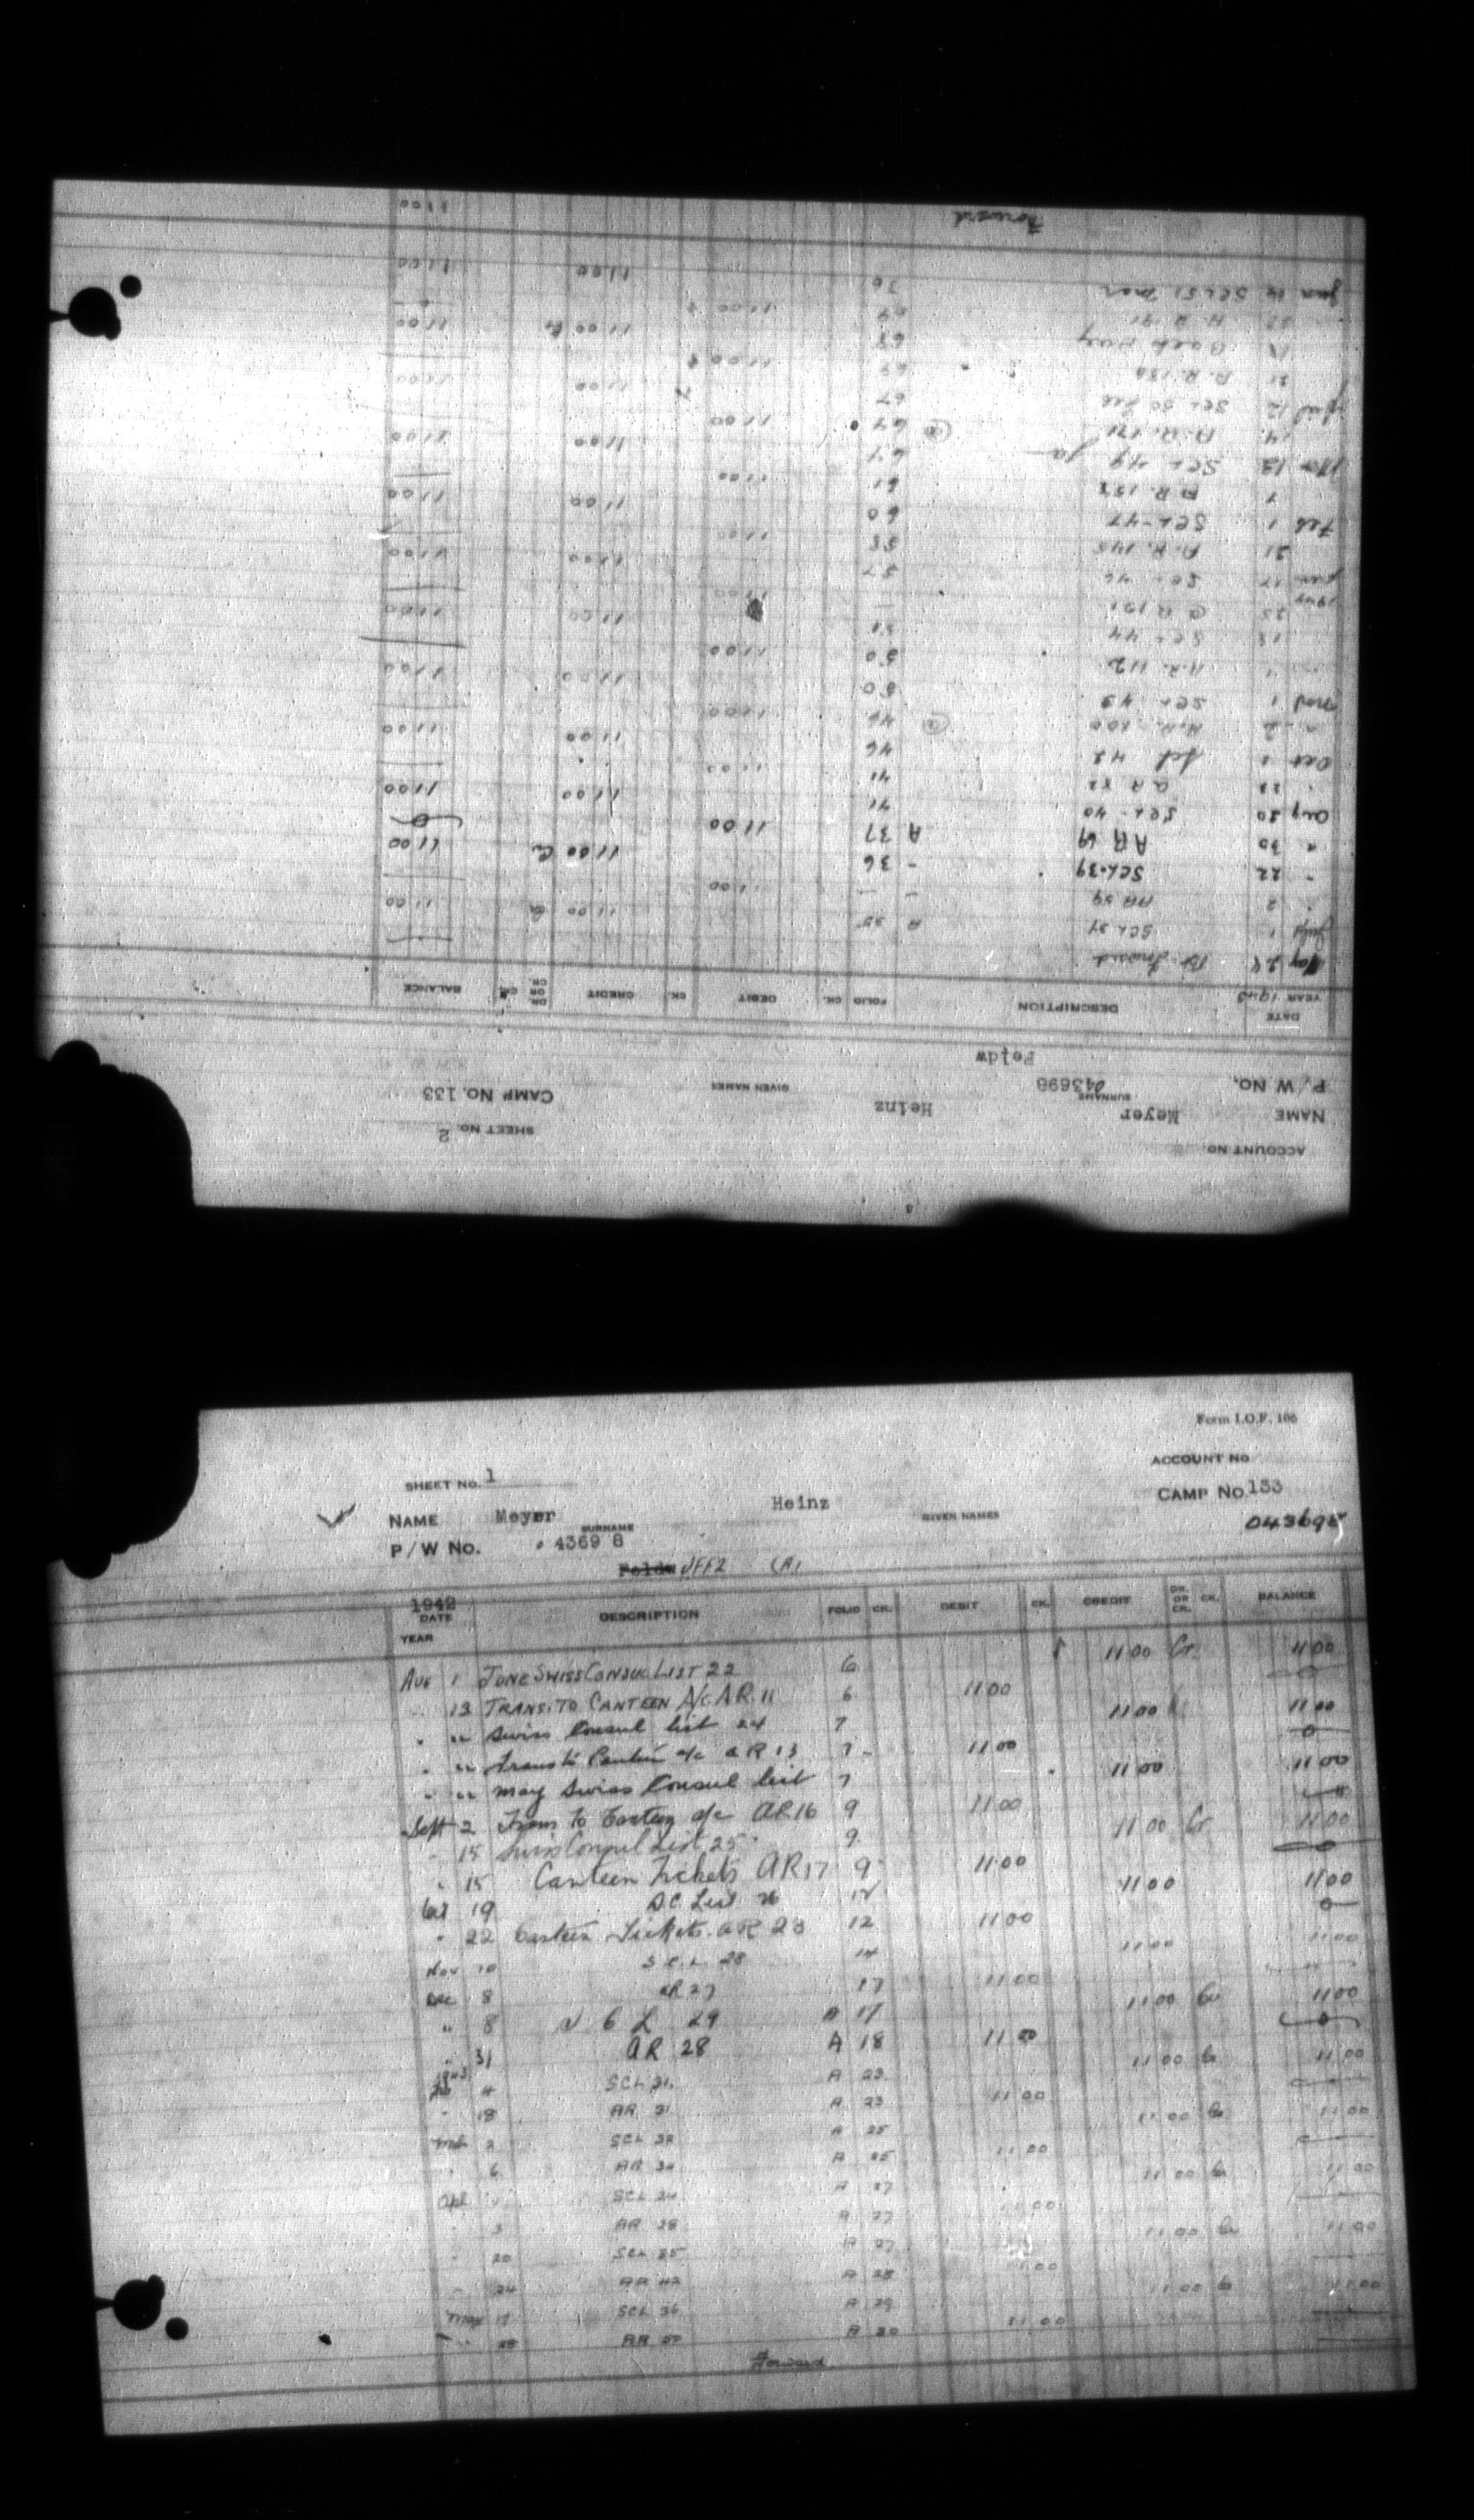 Form I.O.F. 106
ACCOUNT No
SHEET No. 1
CAMP No. 133
NAME Meyer Heinz
SURNAME GIVEN NAMES
P/W No. 43698 043698
UFFZ (A)
1942
DATE DESCRIPTION FOLIO CK. DEBIT CK. CREDIT DR. OR CR. CK. BALANCE
YEAR
Aug 1 JUNE SWISS CONSUL LIST 22 6 11 00 Cr. 11 00
13 TRANS. TO CANTEEN A/C A.R. 11 6 11 00
" " Swiss Consul list 24 7 11 00 11 00
" " Trans to Canteen a/c AR 13 7 11 00
" " May Swiss Consul list 7 11 00 11 00
Sept 2 Trans to Canteen a/c AR 16 9 11 00
" 15 Swiss Consul List 25 9 11 00 Cr 11 00
" 15 Canteen Tickets AR 17 9 11 00
Oct 19 S.C. List 26 12 11 00 11 00
" 22 Canteen Tickets AR 23 12 11 00
Nov 10 S.C.L. 28 14 11 00 11 00
Dec 8 AR 27 17 11 00
" 8 29 A 17 11 00 Cr 11 00
" 31 AR 28 A 18 11 00
1943
4 SCL 31 A 23 11 00 Cr 11 00
" 18 AR 31 A 23 11 00
2 SCL 32 A 25 11 00 Cr 11 00
" 6 AR 34 A 25 11 00
Apl 1 SCL 34 A 27 11 00 Cr 11 00
" 3 AR 38 A 27 11 00
" 20 SCL 35 A 27 11 00 Cr 11 00
" 24 AR 42 A 28 11 00
May 15 SCL 36 A 29 11 00 Cr 11 00
" 28 AR 50 A 30 11 00
Forward
ACCOUNT NO.
SHEET NO. 2
NAME Meyer Heinz
SURNAME GIVEN NAMES
CAMP NO. 133
P/W NO. 043698
Feldw
DATE DESCRIPTION FOLIO CK. DEBIT CK. CREDIT DR. OR CR. CK. BALANCE
YEAR 1943
May 28 Bt. Forward
July 1 SCL 37 A 35 11 00 Cr 11 00
" 2 AR 59 - - 11 00
" 22 SCL-39 - 36 11 00 Cr 11 00
" 30 AR 69 A 37 11 00
Aug 20 SCL-40 41 11 00 11 00
" 22 AR 82 41 11 00
Oct 1 Scl 42 46 11 00 11 00
" 2 A.R. 100 46 11 00
Nov 1 SCL 43 50 11 00 11 00
" A.R. 112 50 11 00
18 SCL 44 51 11 00 11 00
25 AR 121 - 11 00
1944
Jan 17 SCL 46 57 11 00 11 00
21 A.R. 145 58 11 00
Feb 1 SCL-47 60 11 00 11 00
7 A.R. 153 61 11 00
Mar 13 SCL 49 Ja 64 11 00 11 00
14 A.R. 171 64 11 00
12 SCL 50 Feb 67 11 00 11 00
21 A.R. 180 11 00
Back Pay 68 11 00 Cr 11 00
A.R. 11 00
Jun 14 SCL 51 Mar 70 11 00 11 00
Forward 11 00